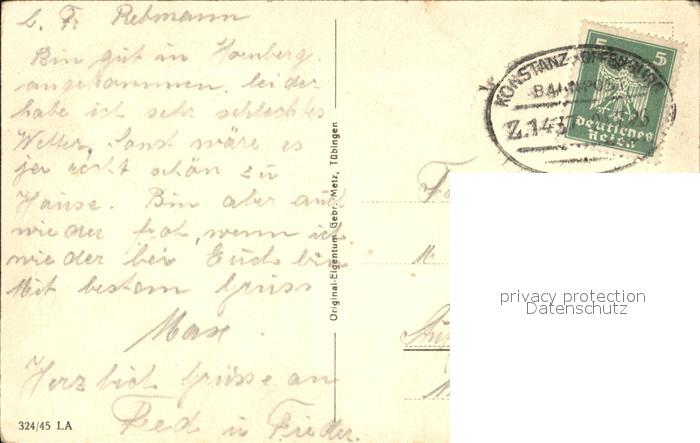 L. Fr. Rebmann
Bin gut in Hornberg
angekommen, leider
habe ich sehr schlechtes
Wetter. Sonst wäre es
ja recht schön zu
Hause. Bin aber auch
wieder froh, wenn ich
wieder bei Euch bin
Mit bestem Gruss
Max.
Herzliche Grüsse an
Fred u Frieder.
324/45 LA
Original-Eigentum Gebr. Metz, Tübingen
KONSTANZ-OFFENBURG
BAHNPOST
Z.1437
5 5
Deutsches
Reich
privacy protection
Datenschutz